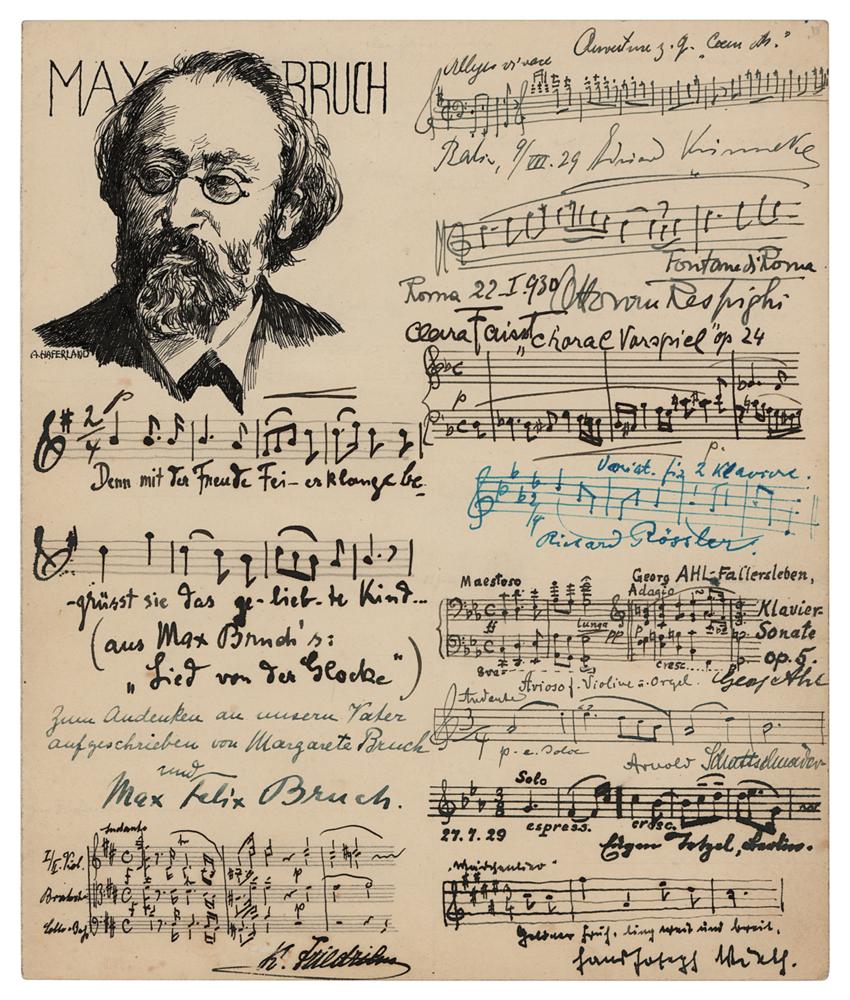 MAX BRUCH
A. HAFERLAND
p
Denn mit der Freude Fei-erklange be-
-grüsst sie das ge-lieb-te Kind...
(aus Max Bruch's:
"Lied von der Glocke")
Zum Andenken an unsern Vater
aufgeschrieben von Margarete Bruch
und
Max Felix Bruch.
Andante
I/II. Viol.
Bratsche
Cello-Baß
f
p
Allegro vivace
Ouverture z. Op.
9/VIII. 29
Fontane di Roma
Roma 22-I.930 Ottorino Respighi
Clara Faisst "Choral Vorspiel" op 24
p
Variat. für 2 Klaviere.
Richard Rössler.
Maestoso
Georg AHL-Fallersleben,
Adagio
Klavier-
Sonate
op. 5.
ff
lunga
pp
8va
cresc.
Georg Ahl
Arioso f. Violine u. Orgel.
Andante
p.
Arnold
Solo
27.7.29
espress.
cresc.
Eugen Tetzel, Berlin.
Früh-ling weit und breit.
Hans Joseph